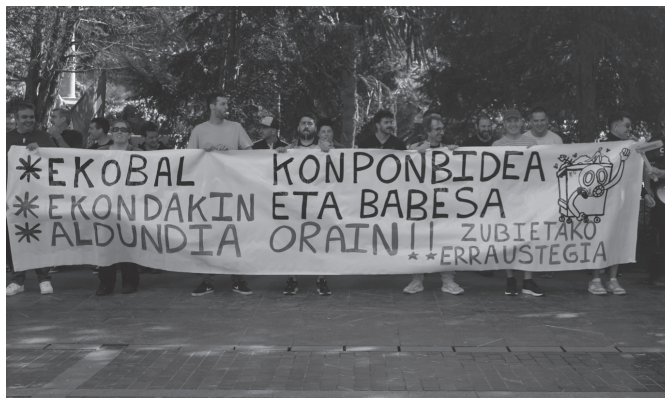 *EKOBAL KONPONBIDEA
*EKONDAKIN ETA BABESA
*ALDUNDIA ORAIN!!
ZUBIETAKO
ERRAUSTEGIA